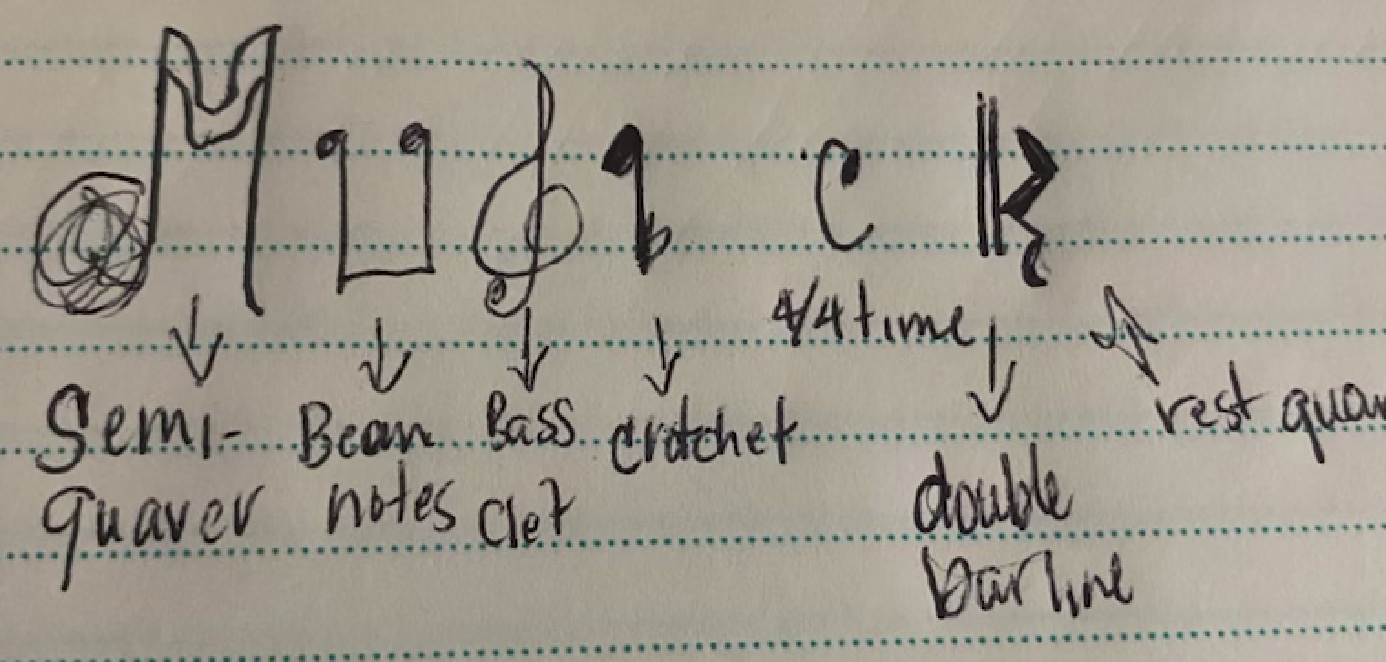 4/4 time
rest
Semi- Beam Bass crotchet
quaver notes Clef
double
barline